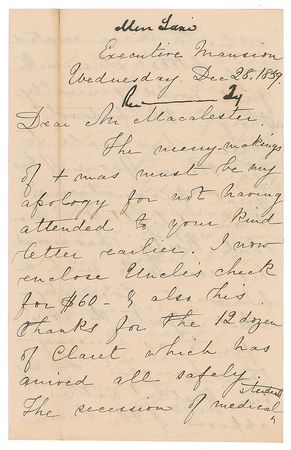 Miss Lane
Executive Mansion
Wednesday. Dec 28. 1859.
Dear Mr Macalester.
The merry-makings
of Xmas must be my
apology for not having
attended to your kind
letter earlier. I now
enclose Uncle's check
for $60 - & also his
thanks for the 12 dozen
of Claret which has
arrived all safely.
students
The secession of medical